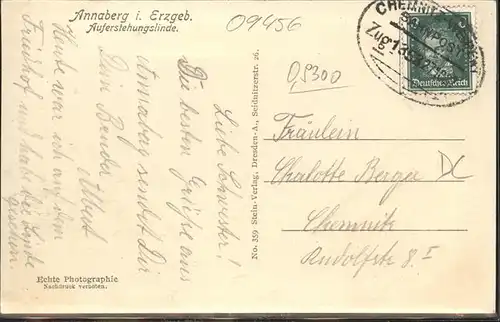 Annaberg i. Erzgeb.
Auferstehungslinde.
09456
0,5300
Liebe Schwester!
Die besten Grüße aus
Annabag sendet Dir
Dein Bruder Albert
Heute war ich auf dem
Friedhof und hab die Linde
gesehen.
Echte Photographie
Nachdruck verboten.
No. 359 Stein-Verlag, Dresden-A., Seidnitzerstr. 26.
CHEMNITZ
BAHNPOST
Zug
Deutsches Reich
Fräulein
Charlotte Berger
Chemnitz
Rudolfstr 8. I